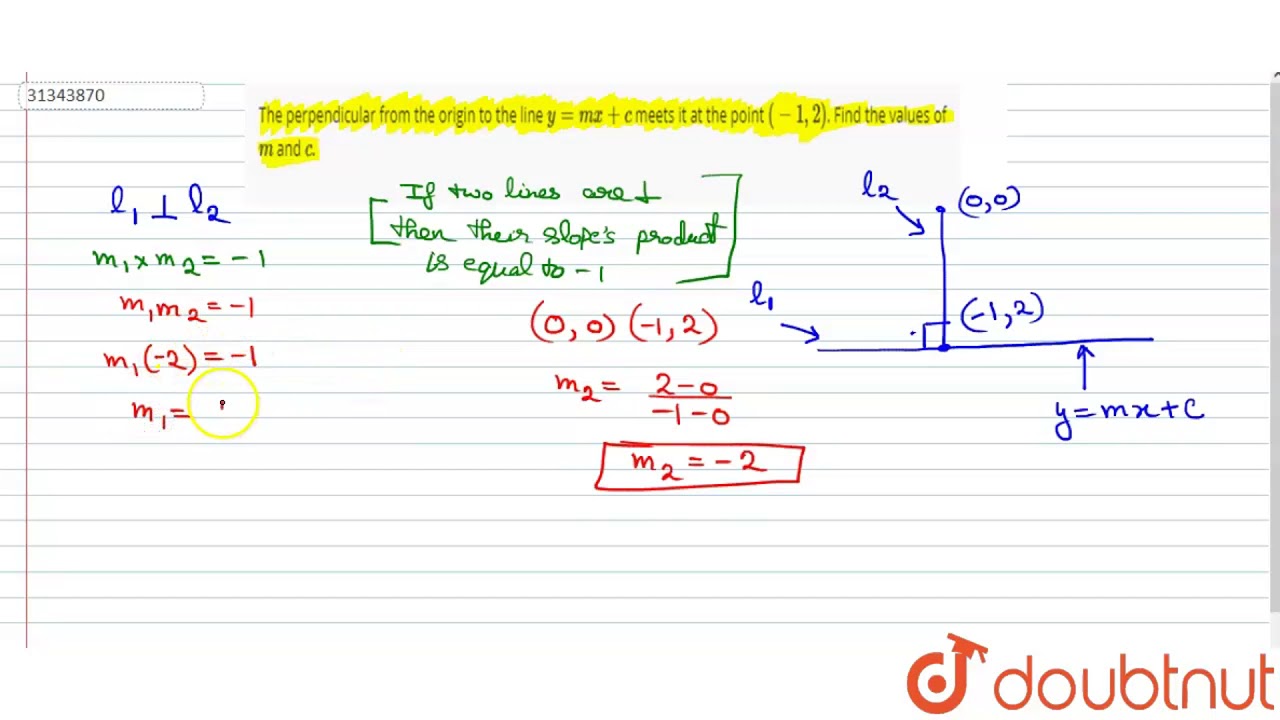 31343870
The perpendicular from the origin to the line y = mx + c meets it at the point (−1, 2). Find the values of
m and c.
l₁ ⊥ l₂
m₁ × m₂ = −1
m₁m₂ = −1
m₁(−2) = −1
m₁ =
If two lines are ⊥
then their slope's product
is equal to −1
(0, 0) (−1, 2)
m₂ = 2 − 0 / −1 − 0
m₂ = −2
l₂
(0,0)
l₁
(−1, 2)
y = mx + c
doubtnut